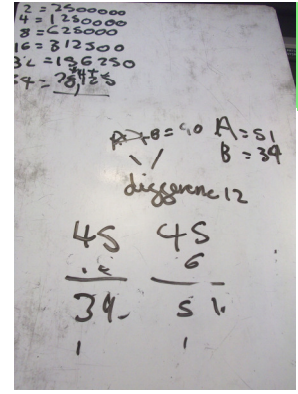 2 = 2500000
4 = 1250000
8 = 625000
16 = 312500
32 = 156250
A + B = 90 A = 51
B = 39
difference 12
45 45
6 6
39 51